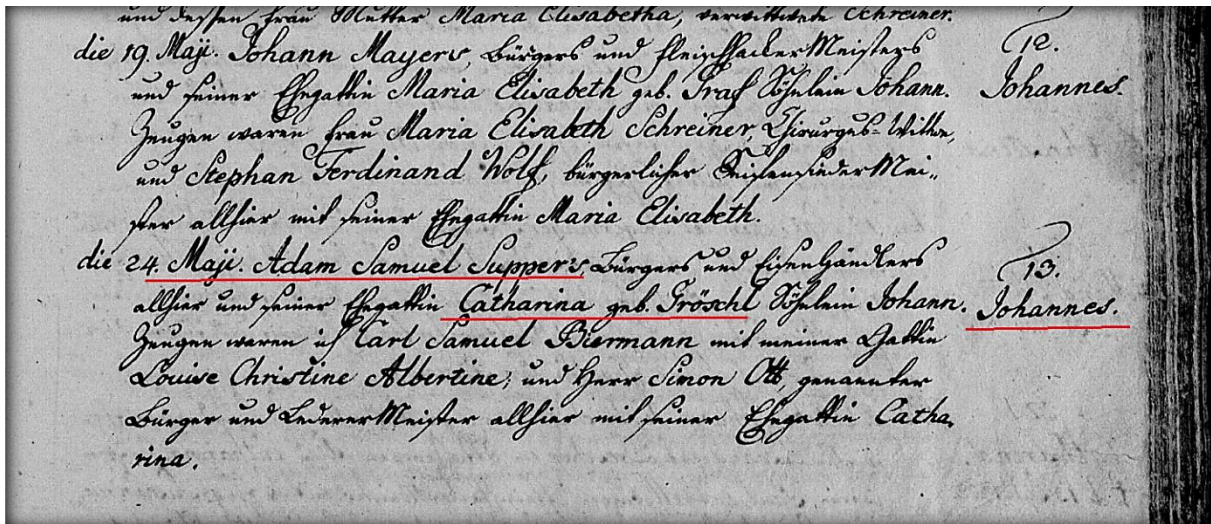 und dessen Frau Mutter Maria Elisabetha, verwittwete Schreiner.
die 19. Maji. Johann Mayers, Bürgers und Fleischhacker Meisters
12.
und seiner Ehegattin Maria Elisabeth geb. Graf Söhnlein Johann.
Johannes.
Zeugen waren Frau Maria Elisabeth Schreiner, Chirurgus-Wittwe,
und Stephan Ferdinand Wolf, bürgerlicher Seifensieder Mei„
ster allhier mit seiner Ehegattin Maria Elisabeth.
die 24. Maji. Adam Samuel Supper's, Bürgers und Eisenhändlers
13.
allhier und seiner Ehegattin Catharina geb. Gröschl Söhnlein Johann.
Johannes.
Zeugen waren ich Carl Samuel Biermann mit meiner Gattin
Louise Christine Albertine; und Herr Simon Ott, genannter
Bürger und Lederer Meister allhier mit seiner Ehegattin Catha„
rina.